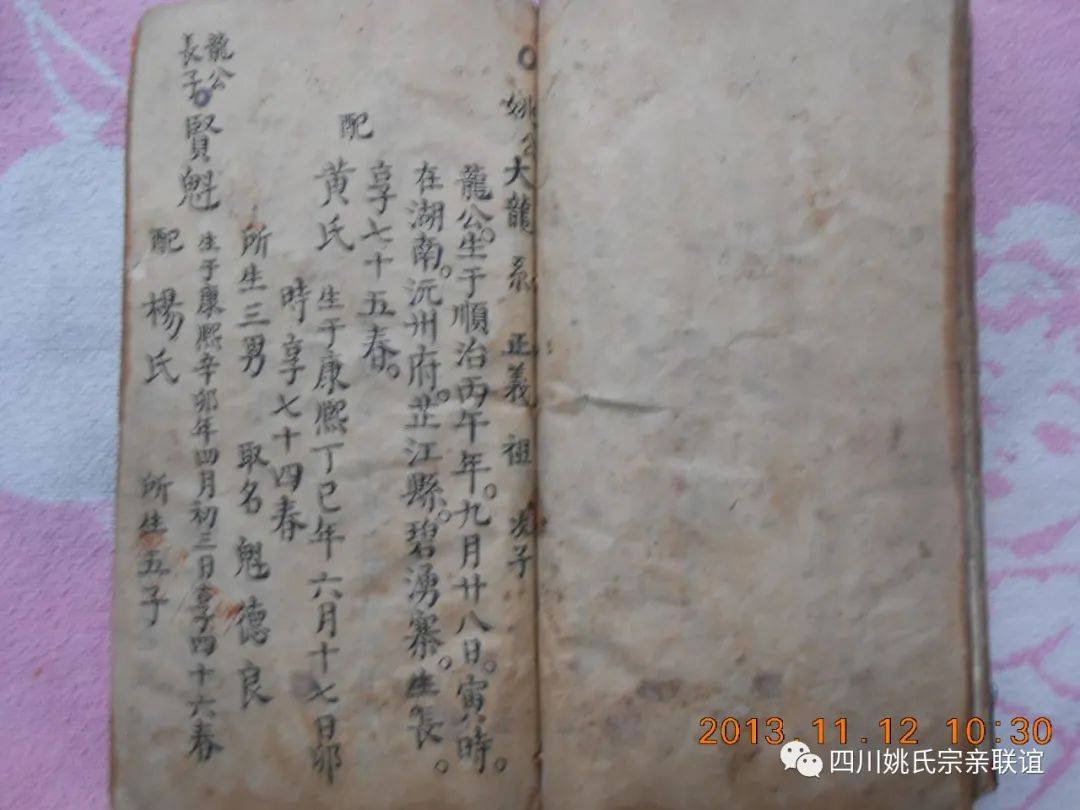 姚公大龍系 正義祖 次子
龍公。生于順治丙午年。九月廿八日。寅時。
在湖南。沅州府。芷江縣。碧湧寨。生長。
享七十五春。
配
黄氏 生于康熈丁巳年六月十七日卯
時享七十四春
所生三男 取名 魁 德 良
龍公
長子
賢魁
生于康熈辛卯年四月初三日享四十六春
配 楊氏 所生五子
2013.11.12 10:30
四川姚氏宗亲联谊